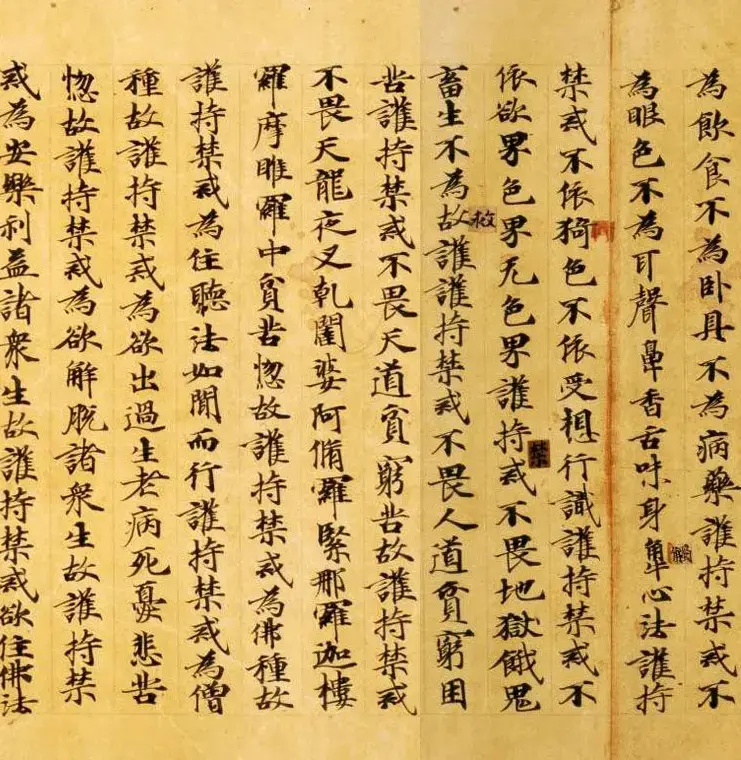 為飲食不為卧具不為病藥護持禁戒不
為眼色不為耳聲鼻香舌味身觸心法護持
禁戒不依猗色不依受想行識護持禁戒不
依欲界色界无色界護持禁戒不畏地獄餓鬼
畜生不為故救護護持禁戒不畏人道貧窮困
苦護持禁戒不畏天道貧窮苦故護持禁戒
不畏天龍夜叉乹闥婆阿脩羅緊那羅迦樓
羅摩睺羅中貧苦惚故護持禁戒為佛種故
護持禁戒為住聽法如聞而行護持禁戒為僧
種故護持禁戒為欲出過生老病死憂悲苦
惚故護持禁戒為欲解脫諸衆生故護持禁
戒為安樂利益諸衆生故護持禁戒欲住佛法